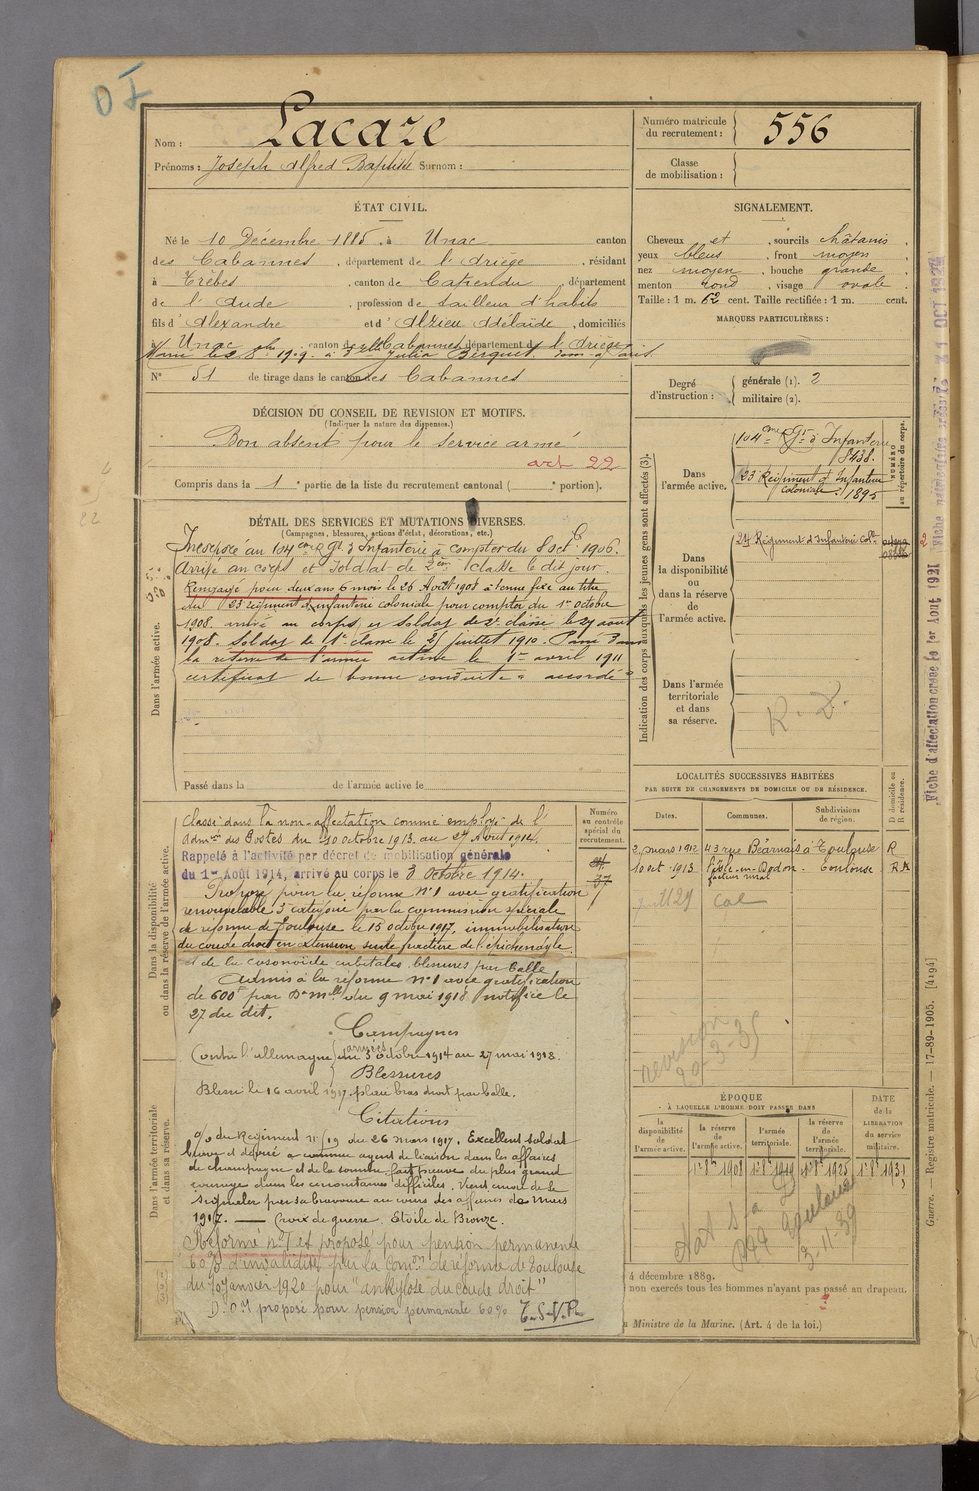 OI
Nom : Lacaze
Prénoms : Joseph Alfred Baptiste Surnom :
Numéro matricule du recrutement : 556
Classe de mobilisation :
ÉTAT CIVIL.
Né le 10 Décembre 1885, à Unac canton
des Cabannes, département de l'Ariège, résidant
à Trèbes, canton de Capendu, département
de l'Aude, profession de tailleur d'habits
fils d'Alexandre et d'Alzieu Adélaïde, domiciliés
à Unac, canton des Cabannes département de l'Ariège
N° 51 de tirage dans le canton des Cabannes
SIGNALEMENT.
Cheveux et sourcils châtains,
yeux bleus, front moyen,
nez moyen, bouche grande,
menton rond, visage ovale.
Taille : 1 m. 62 cent. Taille rectifiée : 1 m. cent.
MARQUES PARTICULIÈRES :
Degré d'instruction : générale (1). 2
militaire (2).
DÉCISION DU CONSEIL DE REVISION ET MOTIFS.
(Indiquer la nature des dispenses.)
Bon absent pour le service armé
art 22
Compris dans la 1e partie de la liste du recrutement cantonal ( e portion).
DÉTAIL DES SERVICES ET MUTATIONS DIVERSES.
(Campagnes, blessures, actions d'éclat, décorations, etc.)
Dans l'armée active.
au 104ème Rgt d'Infanterie à compter du 8 oct 1906.
Arrivé au corps et soldat de 2ème classe le dit jour.
Rengagé pour deux ans 6 mois le 26 Août 1908 à tenue fixe au titre
du 23 régiment d'infanterie coloniale pour compter du 1er octobre
1908. arrivé au corps et soldat de 2e classe le 29 août
1908. Soldat de 1e classe le 21 juillet 1910. Passé dans
la réserve de l'armée active le 1er avril 1911
certificat de bonne conduite "accordé"
Passé dans la de l'armée active le
Indication des corps auxquels les jeunes gens sont affectés (3).
Dans l'armée active.
104me Rgt d'Infanterie
8438.
23 Régiment d'Infanterie
coloniale : 1895
NUMÉRO au répertoire du corps.
Dans la disponibilité ou dans la réserve de l'armée active.
24 Régiment d'Infanterie Cole
Dans l'armée territoriale et dans sa réserve.
R. D.
LOCALITÉS SUCCESSIVES HABITÉES
PAR SUITE DE CHANGEMENTS DE DOMICILE OU DE RÉSIDENCE.
Dates. Communes. Subdivisions de région. D domicile ou R résidence.
2 mars 1912 43 rue Béarnais à Toulouse R
10 oct. 1913 l'Isle-en-Dodon. Toulouse RA
facteur rural
revision
20-3-35
Dans la disponibilité ou dans la réserve de l'armée active.
Numéro au contrôle spécial du recrutement.
Classé dans la non-affectation comme employé de l'
Admon des Postes du 10 octobre 1913 au 27 Août 1914.
Rappelé à l'activité par décret de mobilisation générale
du 1er Août 1914, arrivé au corps le 3 Octobre 1914.
Proposé pour la réforme N°1 avec gratification
renouvelable 3e catégorie par la commission spéciale
de réforme de Toulouse le 15 octobre 1917, immobilisation
du coude droit en extension suite fracture de l'épitrochlée
et de la coronoïde cubitales. blessures par balle
Admis à la réforme N°1 avec gratification
de 600f par Don Mlle du 9 mai 1918 notifiée le
27 du dit.
Campagnes
Contre l'Allemagne (armées) du 3 octobre 1914 au 27 mai 1918.
Blessures
Blessé le 16 avril 1917, plaie bras droit par balle.
Citations
o/o du Régiment N° 119 du 26 mars 1917. Excellent soldat
brave et dévoué a comme agent de liaison dans les affaires
de champagne et de la somme fait preuve du plus grand
courage dans les circonstances difficiles. Vient encore de se
signaler par sa bravoure au cours des affaires de Mars
1917. — Croix de guerre. Etoile de Bronze.
Réformé N°1 et proposé pour pension permanente
60% d'invalidité par la Comon de réforme de Toulouse
du 20 Janvier 1920 pour "ankylose du coude droit"
D.O.I proposé pour pension permanente 60% T.S.V.P.
Dans l'armée territoriale et dans sa réserve.
ÉPOQUE
À LAQUELLE L'HOMME DOIT PASSER DANS
DATE de la LIBÉRATION du service militaire.
la disponibilité de l'armée active. la réserve de l'armée active. l'armée territoriale. la réserve de l'armée territoriale.
1er 8bre 1908 1er 8bre 1919 1er 8bre 1925 1er 8bre 1931
3-11-39
4 décembre 1889.
non exercés tous les hommes n'ayant pas passé au drapeau.
Ministre de la Marine. (Art. 4 de la loi.)
Fiche d'affectation créée le 1er Août 1921
Guerre. — Registre matricule. — 17-89-1905. [4194]